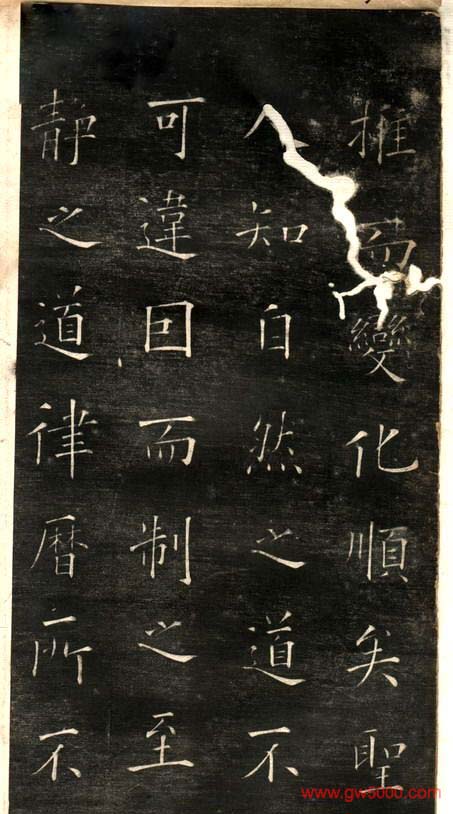 推而變化順矣聖
人知自然之道不
可違囙而制之至
静之道律暦所不
www.gw5000.com